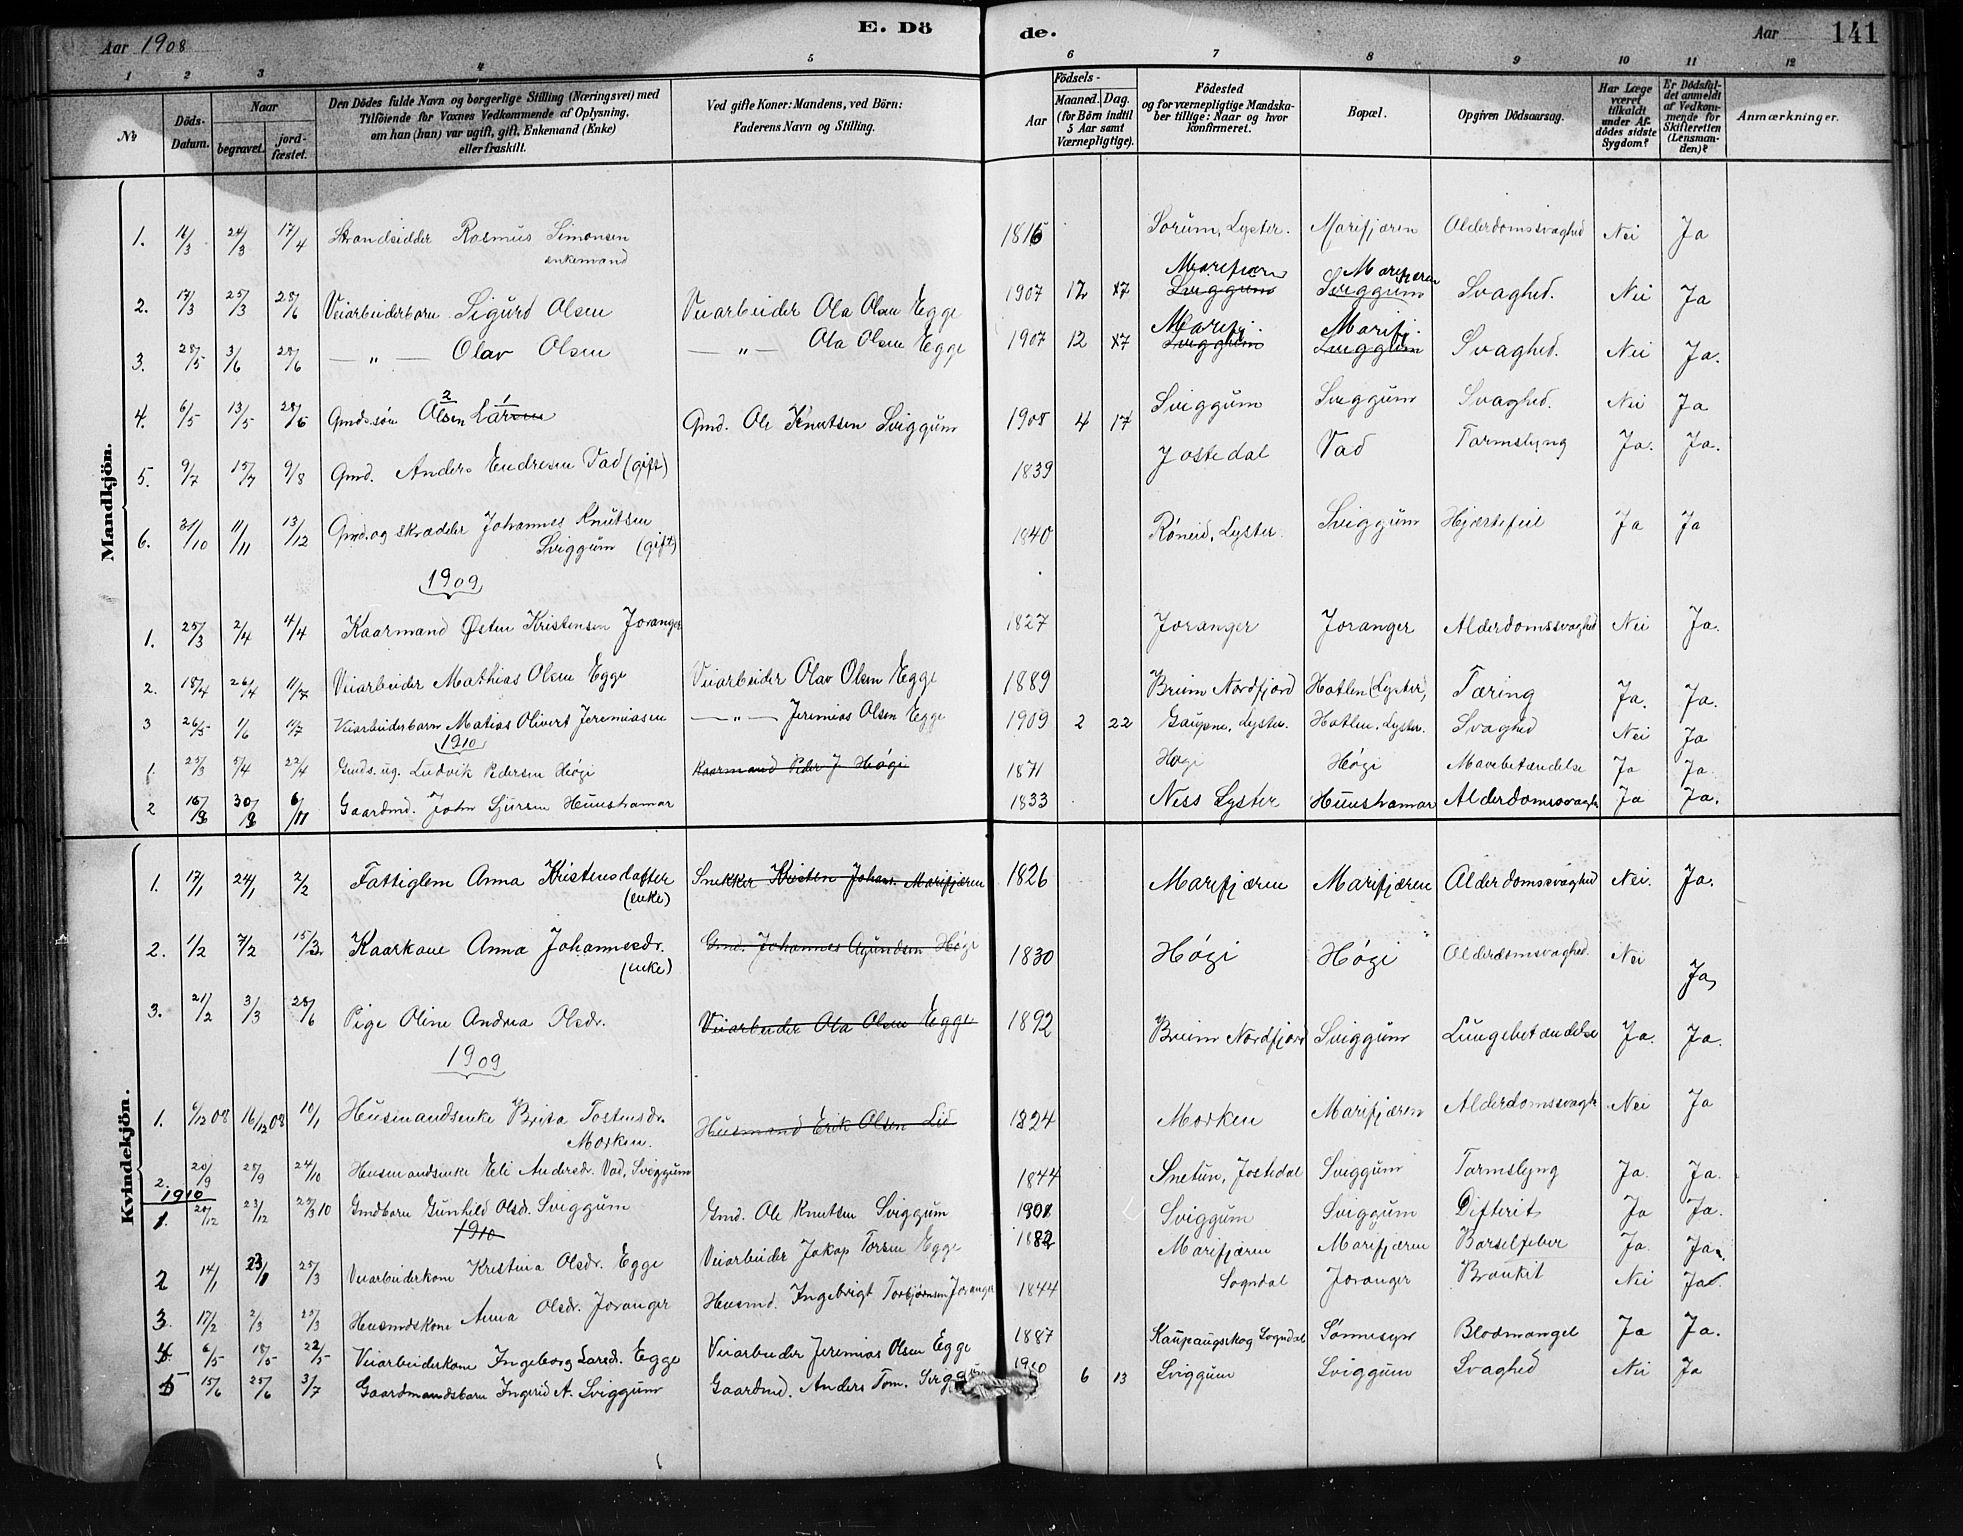 Aar 1908 E. Dö de. Aar 141
1 2 3 4 5 6 7 8 9 10 11 12
No
Döds-Datum.
Naar
begravet. jord-fæstet.
Den Dödes fulde Navn og borgerlige Stilling (Næringsvei) med
Tilföiende for Voxnes Vedkommende af Oplysning,
om han (hun) var ugift, gift, Enkemand (Enke)
eller fraskilt.
Ved gifte Koner: Mandens, ved Börn:
Faderens Navn og Stilling.
Födsels-
Aar
Maaned. Dag.
(for Börn indtil
5 Aar samt
Værnepligtige).
Födested
og for værnepligtige Mandska-
ber tillige: Naar og hvor
konfirmeret.
Bopæl.
Opgiven Dödsaarsag.
Har Læge
været
tilkaldt
under Af-
dödes sidste
Sygdom?
Er Dödsfal-
det anmeldt
af Vedkom-
mende for
Skifteretten
(Lensman-
den)?
Anmærkninger.
Mandkjön.
1. 16/3 24/3 17/4 Strandsidder Rasmus Simonsen 1816 Sorum, Lyster. Marifjæren Alderdomssvaghed Nei Ja
enkemand
Marifjæren Marifjæren
2. 17/3 25/3 28/6 Veiarbeiderbarn Sigurd Olsen Veiarbeider Ola Olsen Egge 1907 12 27 Sviggum Sviggum Svaghed. Nei Ja
Marifj. Marifj.
3. 28/5 3/6 28/6 — „ — Olav Olsen — „ — Ola Olsen Egge 1907 12 27 Sviggum Sviggum Svaghed. Nei Ja.
2 1
4. 6/5 13/5 28/6 Gmds.søn Olsen Lars Gmd. Ole Knutsen Sviggum 1908 4 17 Sviggum Sviggum Svaghed. Nei Ja
5. 9/7 15/7 9/8 Gmd. Anders Endresen Vad (gift) 1839 Jostedal Vad Tarmslyng Ja. Ja.
6. 31/10 11/11 13/12 Gmd. og skrædder Johannes Knutsen 1840 Røneid, Lyster. Sviggum Hjertefeil Ja Ja
Sviggum (gift)
1909
1. 25/3 2/4 4/4 Kaarmand Østen Kristensen Joranger 1827 Joranger Joranger Alderdomssvaghed Nei Ja.
2. 18/4 26/4 11/7 Veiarbeider Mathias Olsen Egge Veiarbeider Olav Olsen Egge 1889 Breim Nordfjord Hatlen (Lyster) Tæring Ja. Ja.
3 26/5 1/6 11/7 Veiarbeiderbarn Matias Olivert Jeremiasen — „ — Jeremias Olsen Egge 1909 2 22 Gaupne, Lyster. Hatlen, Lyster. Svaghed Nei Ja
1910
1. 25/3 5/4 22/4 Gmds. ug. Ludvik Pedersen Høgi Kaarmand Peder J. Høgi 1871 Høgi Høgi Mavebetændelse Ja Ja.
2 Gaardmd. John Sjursen Huushamar 1833 Ness Lyster Huushamar Alderdomssvagh Ja Ja.
Kvindekjön.
1. 17/1 24/1 2/2 Fattiglem Anna Kristensdatter Snekker Kristen Johan. Marifjæren 1826 Marifjæren Marifjæren Alderdomssvaghed Nei. Ja.
(enke)
2. 1/2 7/2 15/3 Kaarkone Anna Johannesdr. Gmd. Johannes Agundsen Høgi 1830 Høgi Høgi Alderdomsvaghed. Nei Ja
(enke)
3. 21/2 3/3 28/6 Pige Oline Andrea Olsdr. Veiarbeider Ola Olsen Egge 1892 Breim Nordfjord Sviggum Lungebetændelse Ja. Ja.
1909
1. 6/12 08 16/12 08 10/1 Husmandsenke Brita Tostensdr. Husmand Erik Olsen Lid 1824 Morken Marifjæren Alderdomssvagh Nei Ja
Morken.
2. 20/9 28/9 24/10 Husmandsenke Eli Andersdr. Vad, Sviggum 1844 Snetun, Jostedal Sviggum Tarmslyng Ja. Ja.
1910
1. 20/12 23/12 Gmdbarn Gunhild Olsdr. Sviggum Gmd. Ole Knutsen Sviggum 1901 Sviggum Sviggum Difterit Ja Ja.
1910
2 14/1 23/1 25/3 Veiarbeiderkone Kristina Olsdr. Egge Veiarbeider Jakop Torsen Egge 1882 Marifjæren Marifjæren Barselfeber Ja. Ja.
3. 17/2 2/3 25/3 Husmdskone Anna Olsdr. Joranger Husmd. Ingebrigt Torbjørnsen Joranger 1844 Sogndal Joranger Bronkit Nei Ja.
4. 6/5 18/5 22/5 Veiarbeiderkone Ingeborg Larsdr. Egge Veiarbeider Jeremias Olsen Egge 1887 Kaupangskog Sogndal Sønnesyn Blodmangel Ja Ja.
5 15/6 25/6 3/7 Gaardmandsbarn Ingerid A. Sviggum Gaardmd. Anders Tom. 1910 6 13 Sviggum Sviggum Svaghed Nei Ja